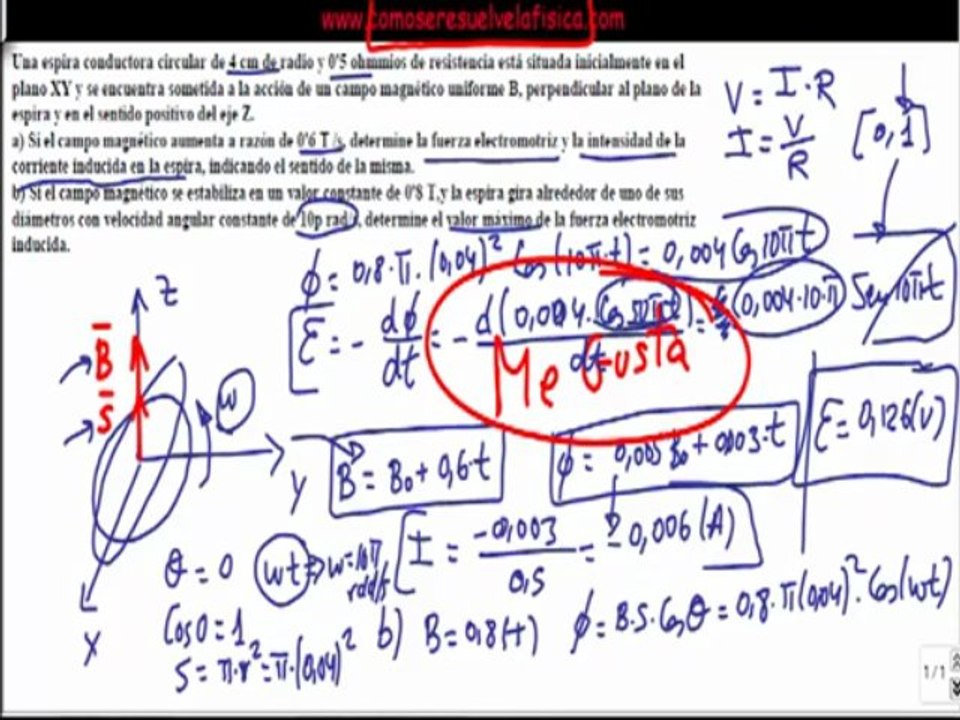 www.comoseresuelvelafisica.com
Una espira conductora circular de 4 cm de radio y 0'5 ohmmios de resistencia está situada inicialmente en el
plano XY y se encuentra sometida a la acción de un campo magnético uniforme B, perpendicular al plano de la
espira y en el sentido positivo del eje Z.
a) Si el campo magnético aumenta a razón de 0'6 T/s, determine la fuerza electromotriz y la intensidad de la
corriente inducida en la espira, indicando el sentido de la misma.
b) Si el campo magnético se estabiliza en un valor constante de 0'8 T, y la espira gira alrededor de uno de sus
diámetros con velocidad angular constante de 10p rad/s, determine el valor máximo de la fuerza electromotriz
inducida.
V = I · R
I = V/R
[0,1]
φ = 0,8·π·(0,04)² Cos(10π·t) = 0,004 Cos 10πt
ε = - dφ/dt = - d(0,004·Cos 10πt)/dt = (0,004·10·π) Sen 10πt
Me Gusta
Z
B
S
w
Y
X
B = B₀ + 0,6·t
φ = 0,005 B₀ + 0,003·t
ε = 0,126 (V)
θ = 0
wt ⇒ w = 10π rad/s
I = -0,003/0,5 = -0,006 (A)
Cos 0 = 1
S = π·r² = π·(0,04)²
b) B = 0,8 (T)
φ = B·S·Cos θ = 0,8·π(0,04)²·Cos(wt)
1/1